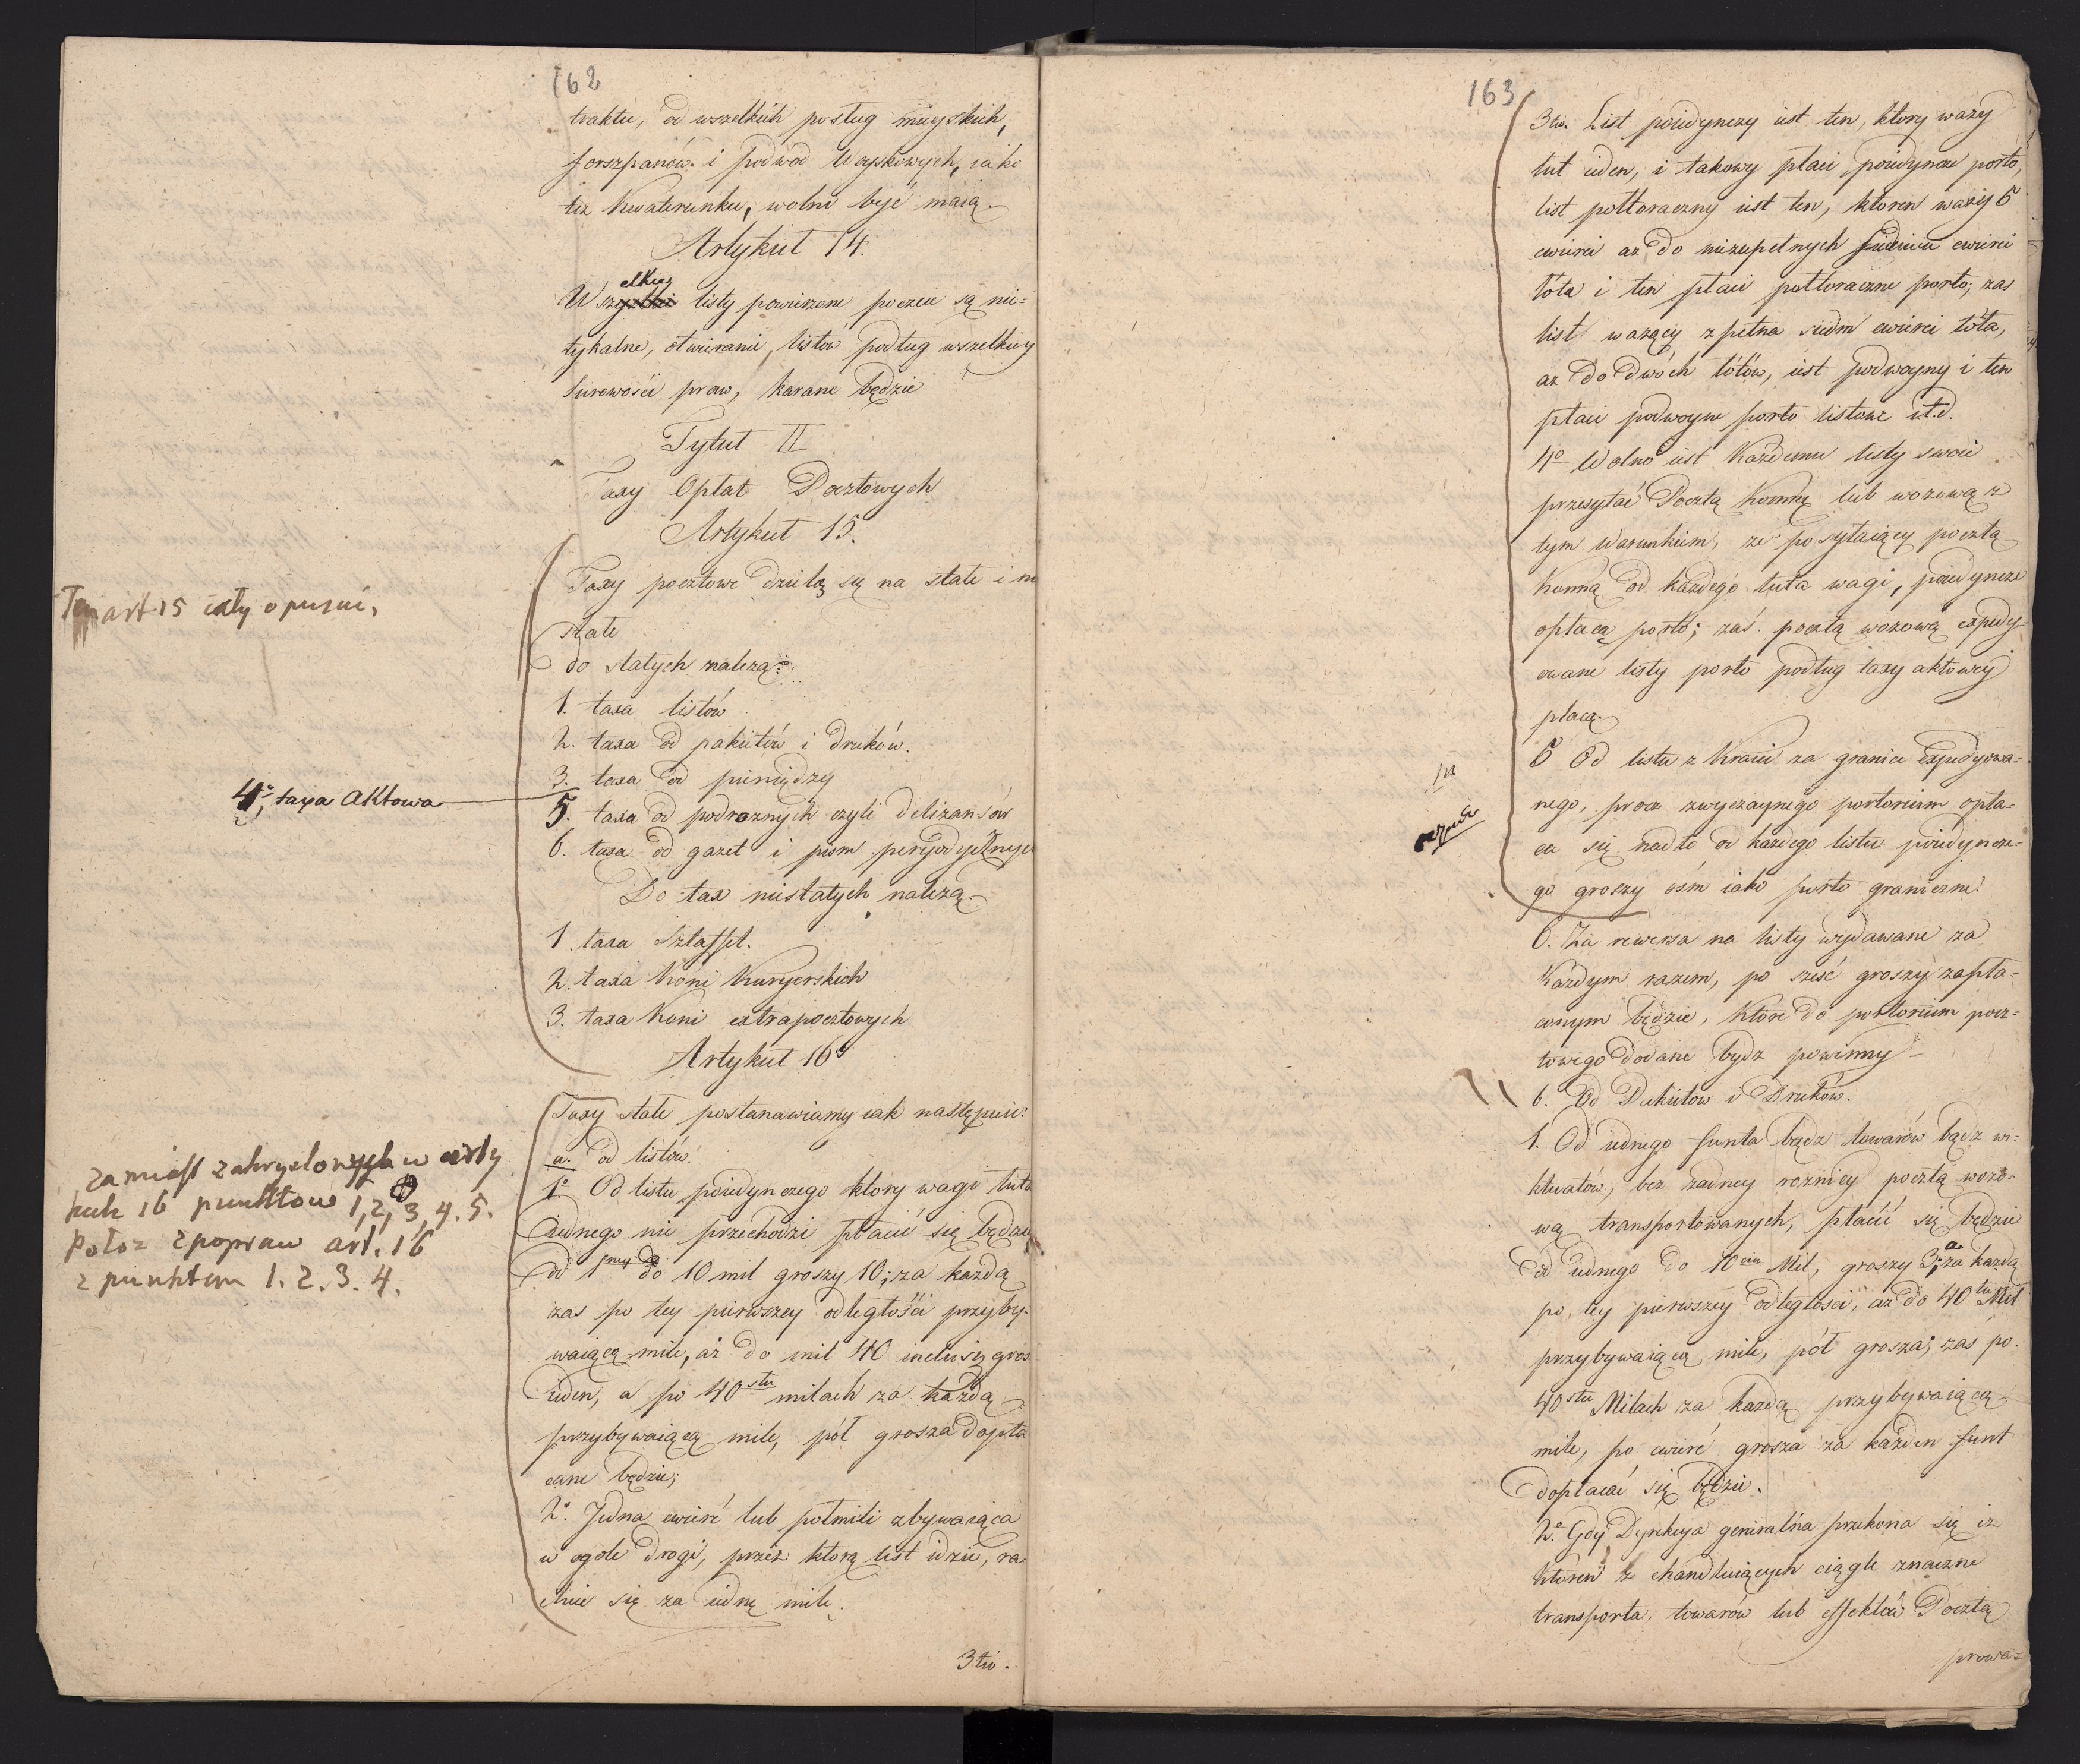 162
traktu, od wszelkich posług mieyskich,
forszpanów i podwod Woyskowych, iako
też Kwaterunku, wolni być maią
Artykuł 14.
Wszelkie listy powierzone poczcie są nie=
tykalne, otwieranie listów podług wszelkiey
surowości praw, karane będzie
Tytuł II
Taxy Opłat Pocztowych
Artykuł 15.
Taxy pocztowe dzielą się na stałe i nie
stałe
do stałych należą:
1. taxa listów
2. taxa od pakietów i druków.
3. taxa od pieniędzy
4°, taxa Aktowa
5. taxa od podroznych czyli deliżansów
6. taxa od gazet i pism peryodycznych
Do tax niestałych należą
1. taxa Sztaffet.
2. taxa koni Kuryerskich
3. taxa Koni extrapocztowych
Ten art 15 cały opuscić,
Artykuł 16
Taxy stałe postanawiamy iak następuie:
a. od listów.
1° Od listu poiedynczego ktory wagi łuta
iednego nie przechodzi płacić się będzie
od 1 mey do 10 mil groszy 10; za każdą
zas po tey pierwszey odległości przyby-
waiącą mile, aż do mil 40 inclusię grosz
ieden, a po 40stu milach za każdą
przybywaiącą mile, pół grosza dopła
cane będzie;
2°. Jedna cwierć lub pół mili zbywaiąca
w ogole drogi, przez ktorą list idzie, ra
chuie się za iednę milę.
3tio.
zamiast zakryslonych w arty
kule 16 punktow 1, 2, 3, 4. 5.
Położ z popraw art. 16
z punktem 1. 2. 3. 4.
163
3tio. List poiedynczy iest ten, ktory wazy
łut ieden, i takowy płaci poiedyncze porto,
list półtoraczny iest ten, ktoren waży 5
cwierci az do niezupełnych siedmiu cwierci
łóta i ten płaci półtoraczne porto; zas
list wazący zpełna siedm cwierci łóta,
az do dwóch łótów, iest podwoyny i ten
płaci podwoyne porto listowe i t.d.
4° Wolno iest Każdemu listy swoie
przesyłać Pocztą Konną lub wozową z
tym warunkiem, ze posyłaiący pocztą
Konną od każdego łuta wagi, poiedyncze
opłacą porto; zaś pocztą wozową expedy-
owane listy porto podług taxy aktowey
płacą.
5 Od listu z Kraiu za granice expedyowa=
nego, procz zwyczaynego portorium opła=
ca się nadto od każdego listu poiedyncze=
go groszy ośm iako porto graniczne.
6. Za rewersa na listy wydawane za
Każdym razem, po sześć groszy zapła=
conym będzie, które do portorium pocz=
towego dodane bydz powinny
b. Od Pakietow i Druków.
1. Od iednego funta bądz towarów bądz wi=
ktuałów, bez zadney roznicy pocztą wozo=
wą transportowanych, płacić się będzie
od iednego do 10ciu Mil, groszy 3; a za każdą
po tey pierwszey odległości, aż do 40tu Mil
przybywaiącą mile, pół grosza; zas po
40stu Milach za każdą przybywaiącą
mile, po cwierć grosza za każden funt
dopłacać się będzie.
2° Gdy Dyrekcya generalna przekona się iz
ktoren z chandluiących ciągle znaczne
transporta, towarów lub effektów Pocztą
prowa=